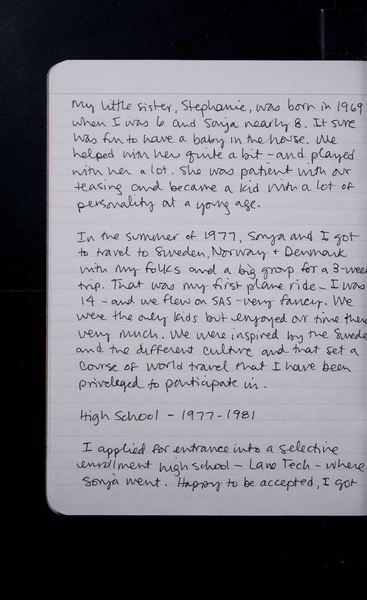 My little sister, Stephanie, was born in 1969
when I was 6 and Sonja nearly 8. It sure
was fun to have a baby in the house. We
helped with her quite a bit - and played
with her a lot. She was patient with our
teasing and became a kid with a lot of
personality at a young age.
In the summer of 1977, Sonja and I got
to travel to Sweden, Norway + Denmark
with my folks and a big group for a 3-week
trip. That was my first plane ride - I was
14 - and we flew on SAS - very fancy. We
were the only kids but enjoyed our time there
very much. We were inspired by the Swede
and the different culture and that set a
course of world travel that I have been
privileged to participate in.
High School - 1977-1981
I applied for entrance into a selective
enrollment high school - Lane Tech - where
Sonja went. Happy to be accepted, I got